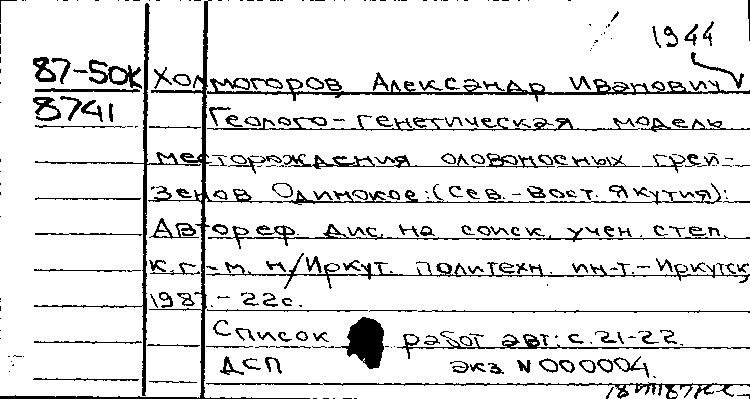 1944
87-50К Холмогоров Александр Иванович
8741 Геолого-генетическая модель
месторождения оловоносных грей-
зенов Одинокое: (Сев.-Вост. Якутия):
Автореф. дис. на соиск. учен. степ.
к.г.-м. н/Иркут. политехн. ин-т.-Иркутск,
1987.-22с.
Список работ авт: с.21-22.
ДСП экз N 000004.